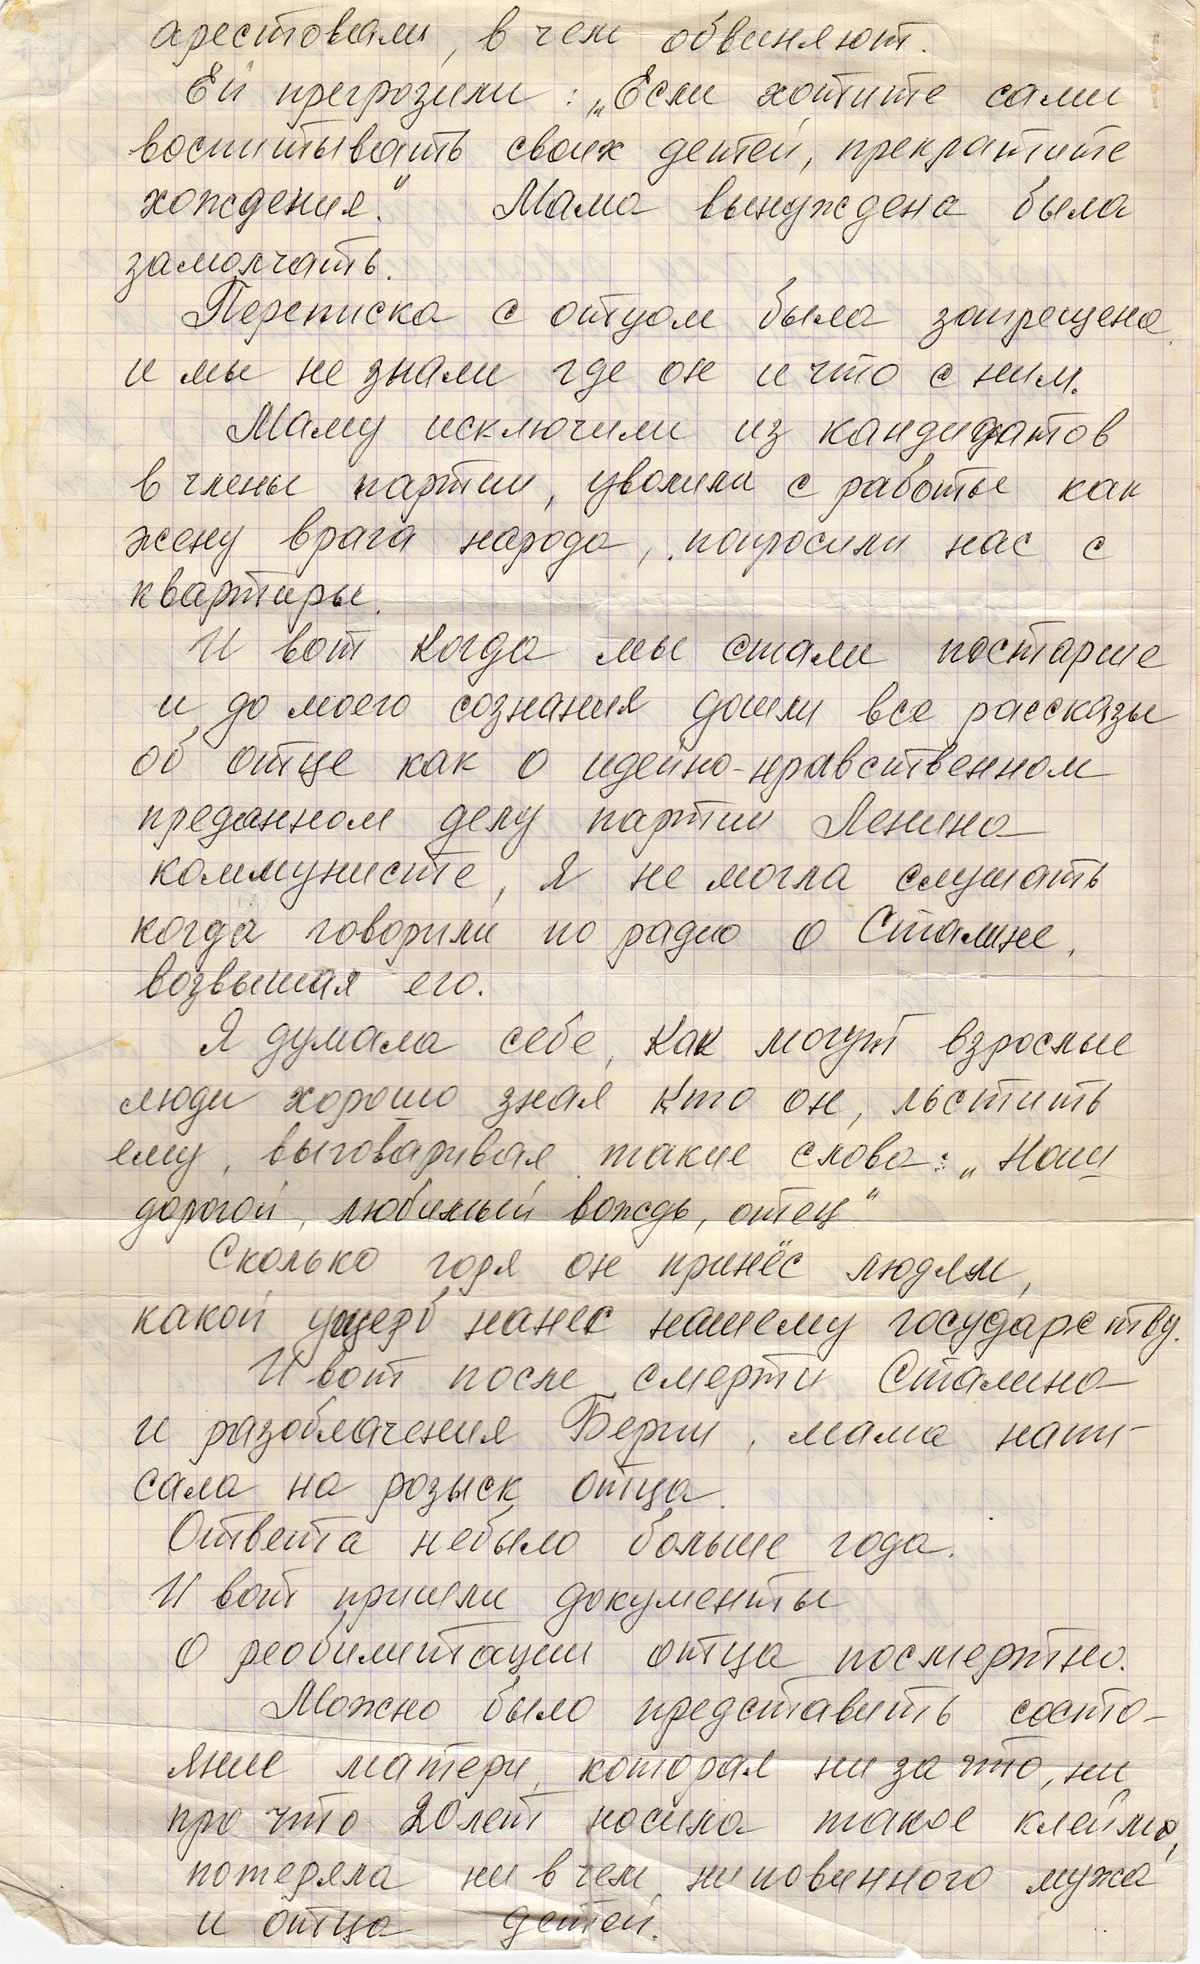 арестовали, в чем обвиняют.
Ей пригрозили: „Если хотите сами
воспитывать своих детей, прекратите
хождения." Мама вынуждена была
замолчать.
Переписка с отцом была запрещена
и мы не знали где он и что с ним.
Маму исключили из кандидатов
в члены партии, уволили с работы как
жену врага народа, попросили нас с
квартиры.
И вот когда мы стали постарше
и до моего сознания дошли все рассказы
об отце как о идейно-нравственном
преданном делу партии Ленина
коммунисте, я не могла слушать
когда говорили по радио о Сталине,
возвышая его.
Я думала себе, как могут взрослые
люди хорошо зная кто он, льстить
ему, выговаривая такие слова: „Наш
дорогой, любимый вождь, отец"
Сколько горя он принёс людям,
какой ущерб нанес нашему государству.
И вот после смерти Сталина
и разоблачения Берии, мама напи-
сала на розыск отца.
Ответа небыло больше года.
И вот пришли документы
о реабилитации отца посмертно.
Можно было представить состо-
яние матери, которая ни за что, ни
про что 20 лет носила такое клеймо,
потеряла ни в чем ни повинного мужа
и отца детей.